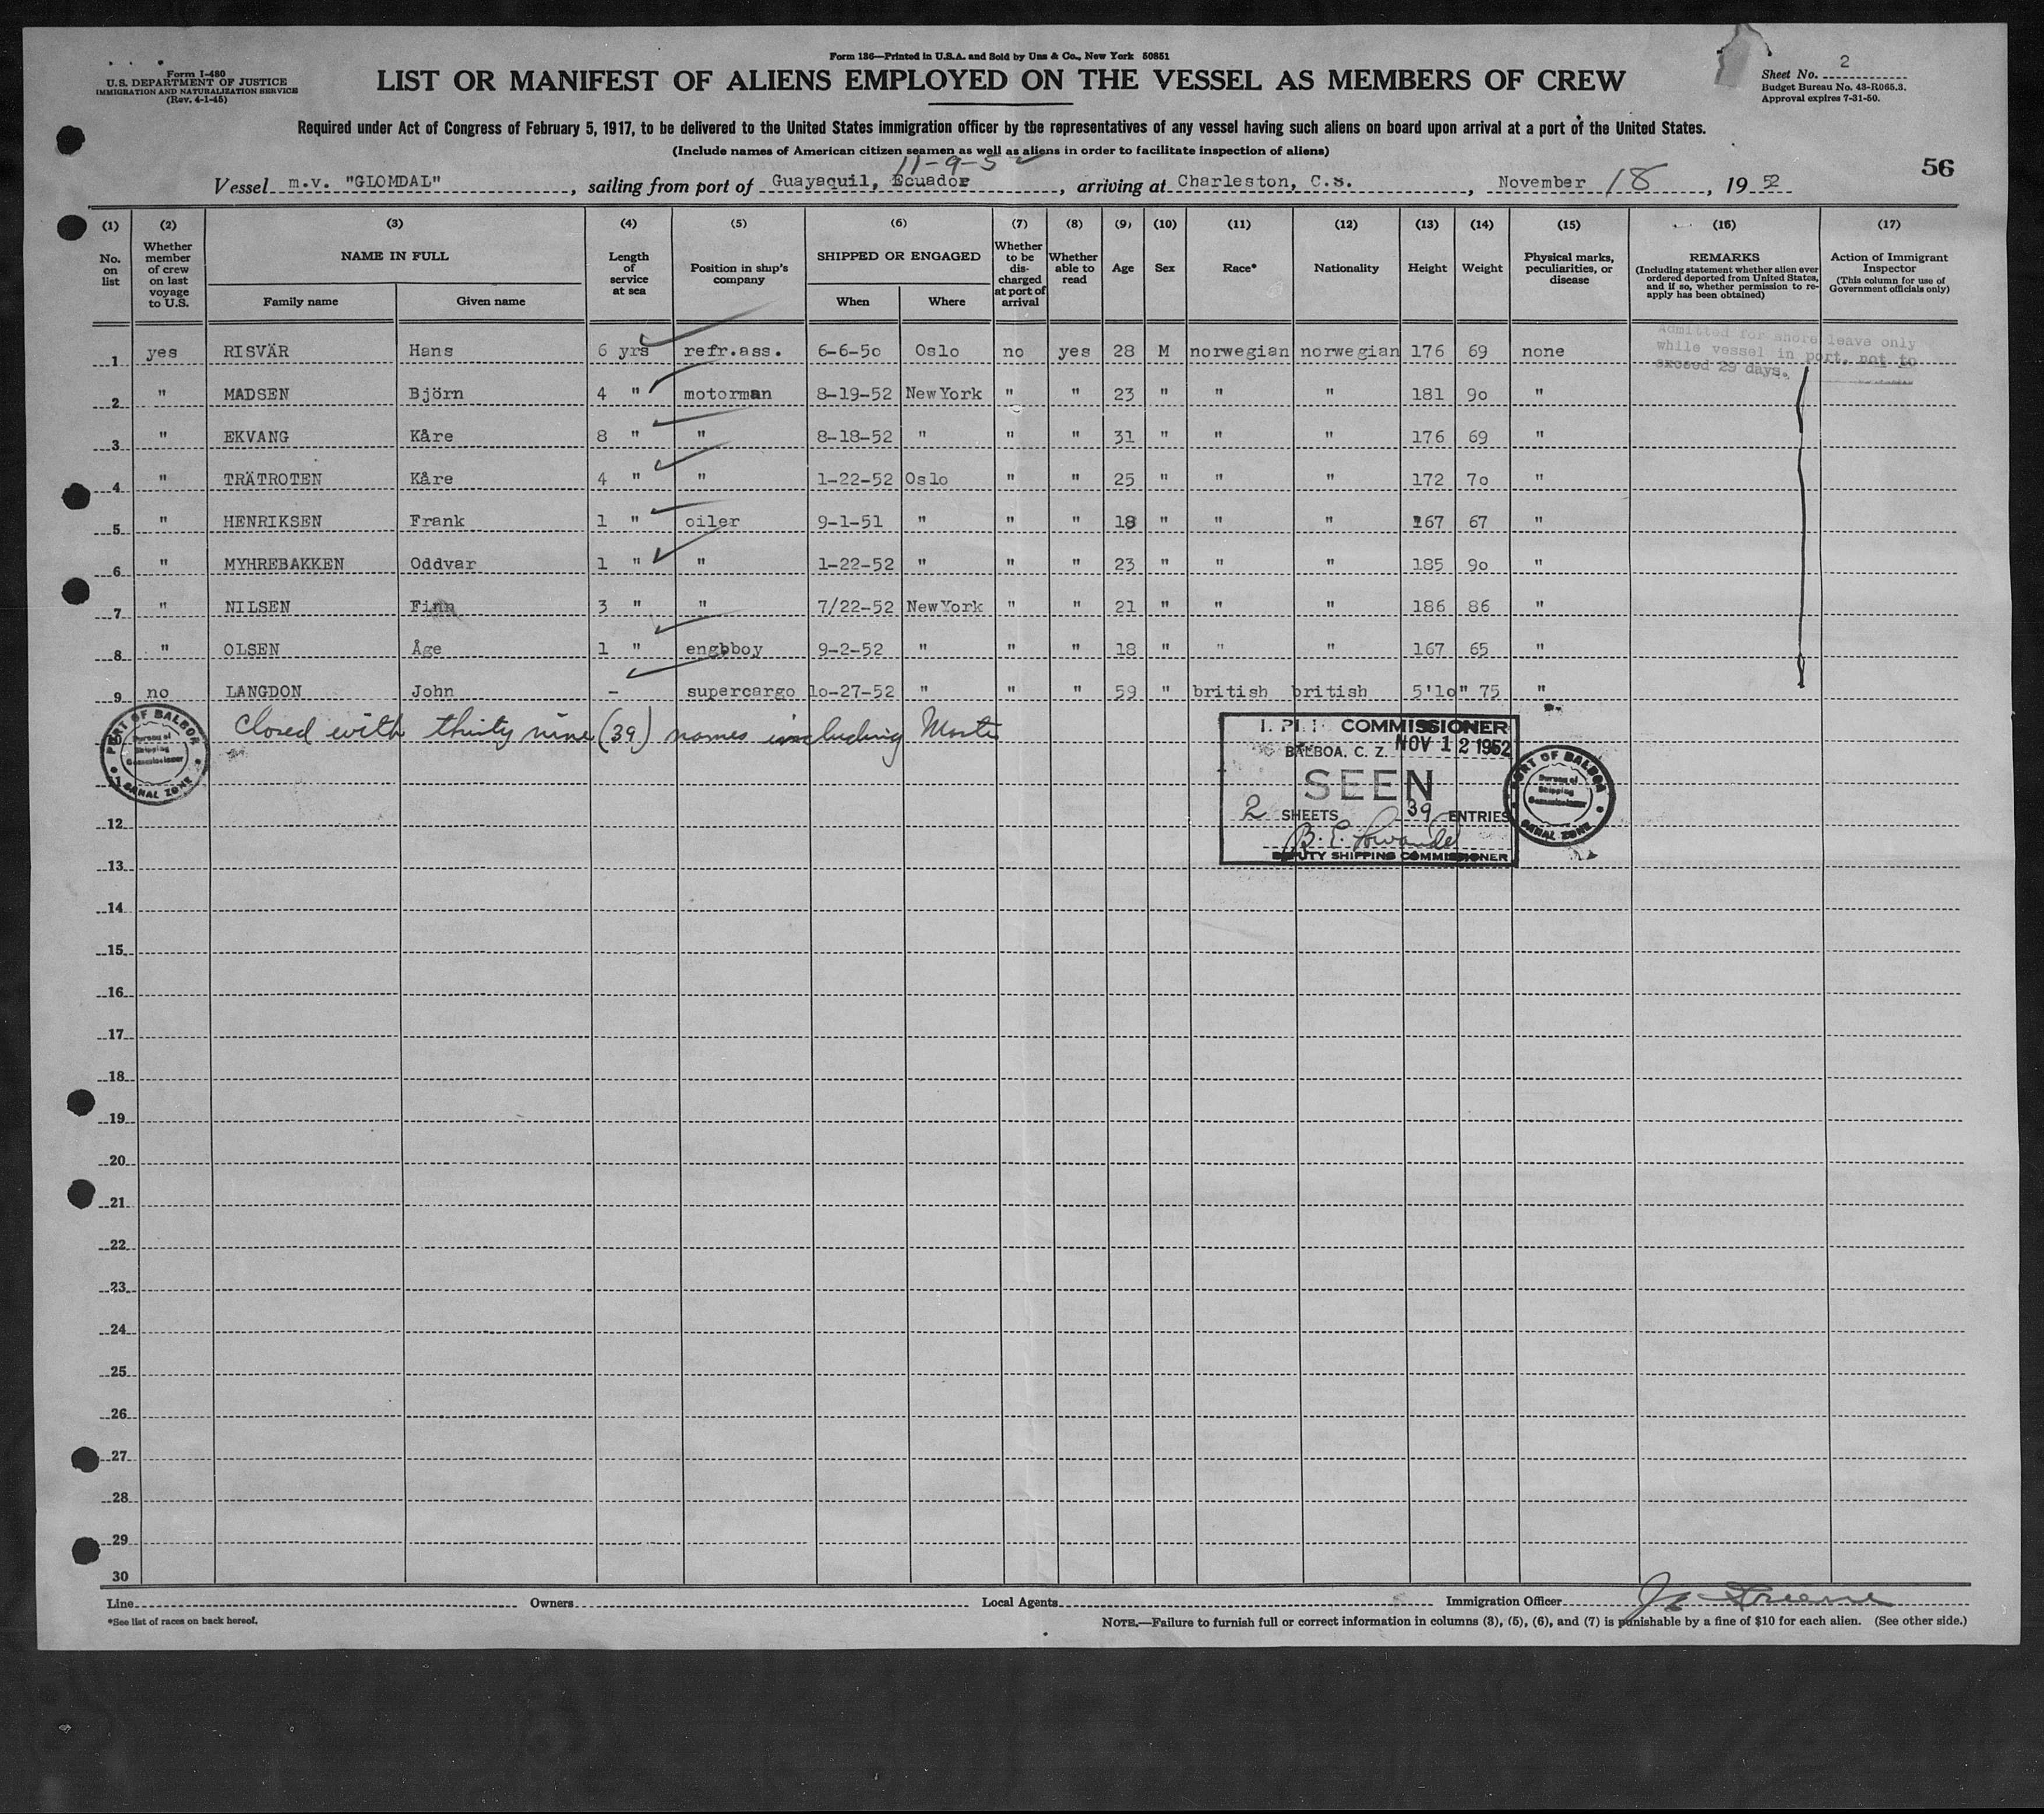 Form 136—Printed in U.S.A. and Sold by Unz & Co., New York 50851
Form I-480
U.S. DEPARTMENT OF JUSTICE
IMMIGRATION AND NATURALIZATION SERVICE
(Rev. 4-1-45)
LIST OR MANIFEST OF ALIENS EMPLOYED ON THE VESSEL AS MEMBERS OF CREW
Sheet No. 2
Budget Bureau No. 43-R065.3.
Approval expires 7-31-50.
Required under Act of Congress of February 5, 1917, to be delivered to the United States immigration officer by the representatives of any vessel having such aliens on board upon arrival at a port of the United States.
(Include names of American citizen seamen as well as aliens in order to facilitate inspection of aliens)
11-9-52
56
Vessel m.v. "GLOMDAL", sailing from port of Guayaquil, Ecuador, arriving at Charleston, C.s., November 18, 1952
(1) (2) (3) (4) (5) (6) (7) (8) (9) (10) (11) (12) (13) (14) (15) (16) (17)
No. on list
Whether member of crew on last voyage to U.S.
NAME IN FULL
Family name
Given name
Length of service at sea
Position in ship's company
SHIPPED OR ENGAGED
When
Where
Whether to be discharged at port of arrival
Whether able to read
Age
Sex
Race*
Nationality
Height
Weight
Physical marks, peculiarities, or disease
REMARKS
(Including statement whether alien ever ordered deported from United States, and if so, whether permission to reapply has been obtained)
Action of Immigrant Inspector
(This column for use of Government officials only)
Admitted for shore leave only
while vessel in port, not to
exceed 29 days.
1 yes RISVÄR Hans 6 yrs refr.ass. 6-6-50 Oslo no yes 28 M norwegian norwegian 176 69 none
2 " MADSEN Björn 4 " motorman 8-19-52 New York " " 23 " " " 181 90 "
3 " EKVANG Kåre 8 " " 8-18-52 " " " 31 " " " 176 69 "
4 " TRÄTROTEN Kåre 4 " " 1-22-52 Oslo " " 25 " " " 172 70 "
5 " HENRIKSEN Frank 1 " oiler 9-1-51 " " " 18 " " " 167 67 "
6 " MYHREBAKKEN Oddvar 1 " " 1-22-52 " " " 23 " " " 185 90 "
7 " NILSEN Finn 3 " " 7/22-52 New York " " 21 " " " 186 86 "
8 " OLSEN Åge 1 " engbboy 9-2-52 " " " 18 " " " 167 65 "
9 no LANGDON John - supercargo 10-27-52 " " " 59 " british british 5'10" 75 "
Closed with thirty nine (39) names including Master
PORT OF BALBOA
Bureau of
Shipping
Commissioner
CANAL ZONE
COMMISSIONER
BALBOA, C. Z. NOV 12 1952
SEEN
2 SHEETS 39 ENTRIES
B. E.
DEPUTY SHIPPING COMMISSIONER
PORT OF BALBOA
Bureau of
Shipping
Commissioner
CANAL ZONE
12
13
14
15
16
17
18
19
20
21
22
23
24
25
26
27
28
29
30
Line Owners Local Agents Immigration Officer
*See list of races on back hereof.
NOTE.—Failure to furnish full or correct information in columns (3), (5), (6), and (7) is punishable by a fine of $10 for each alien. (See other side.)